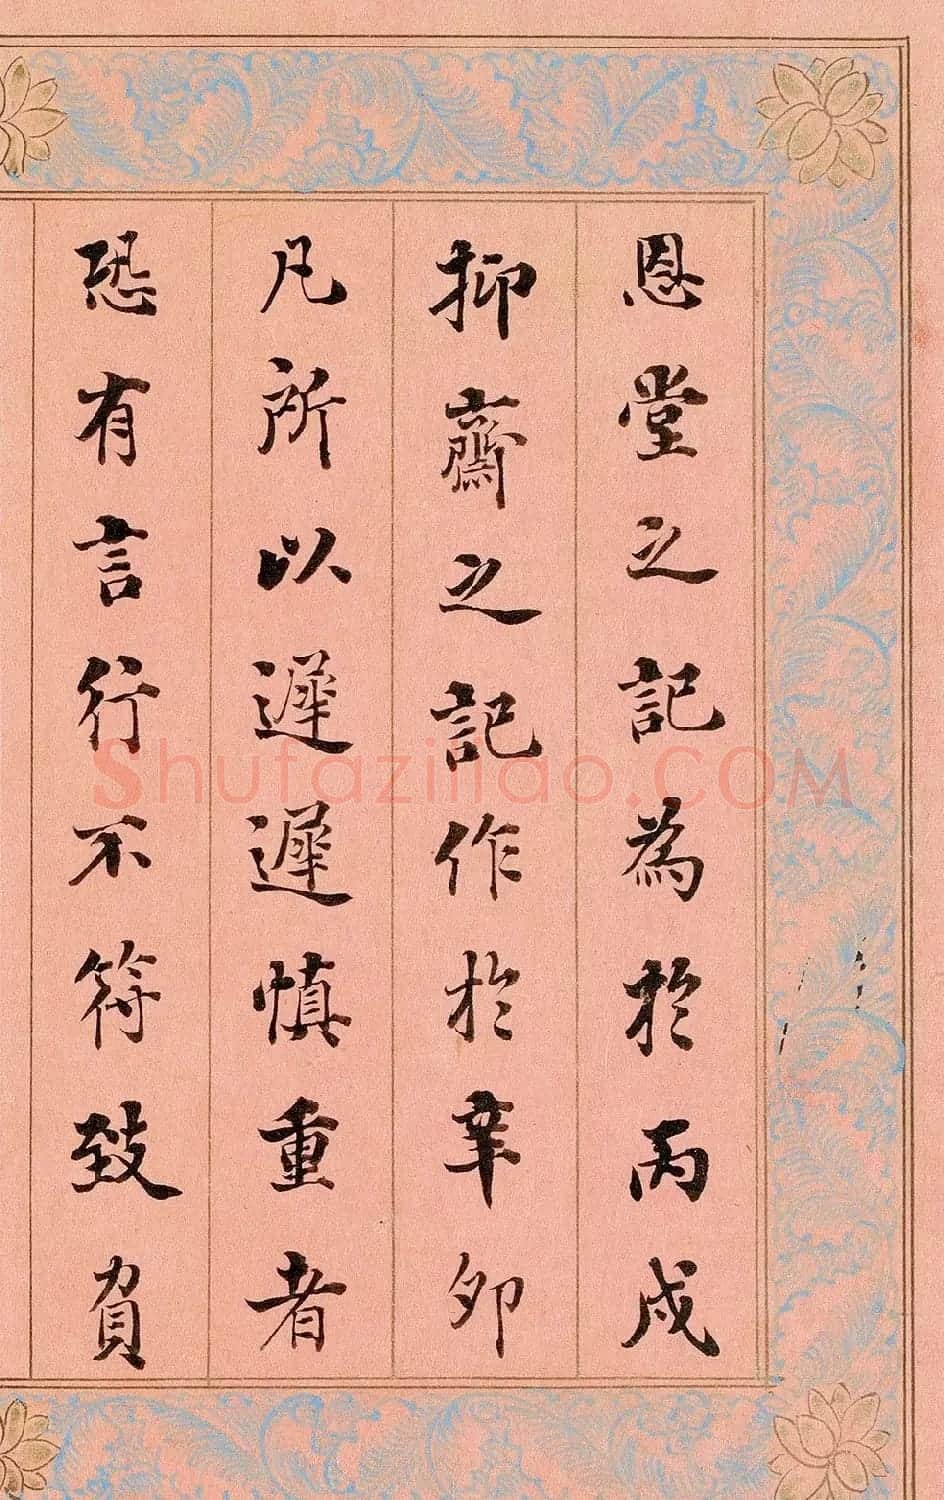 恩堂之記為於丙戌
抑齋之記作於辛卯
凡所以遲遲慎重者
恐有言行不符致負
Shufaziliao.COM